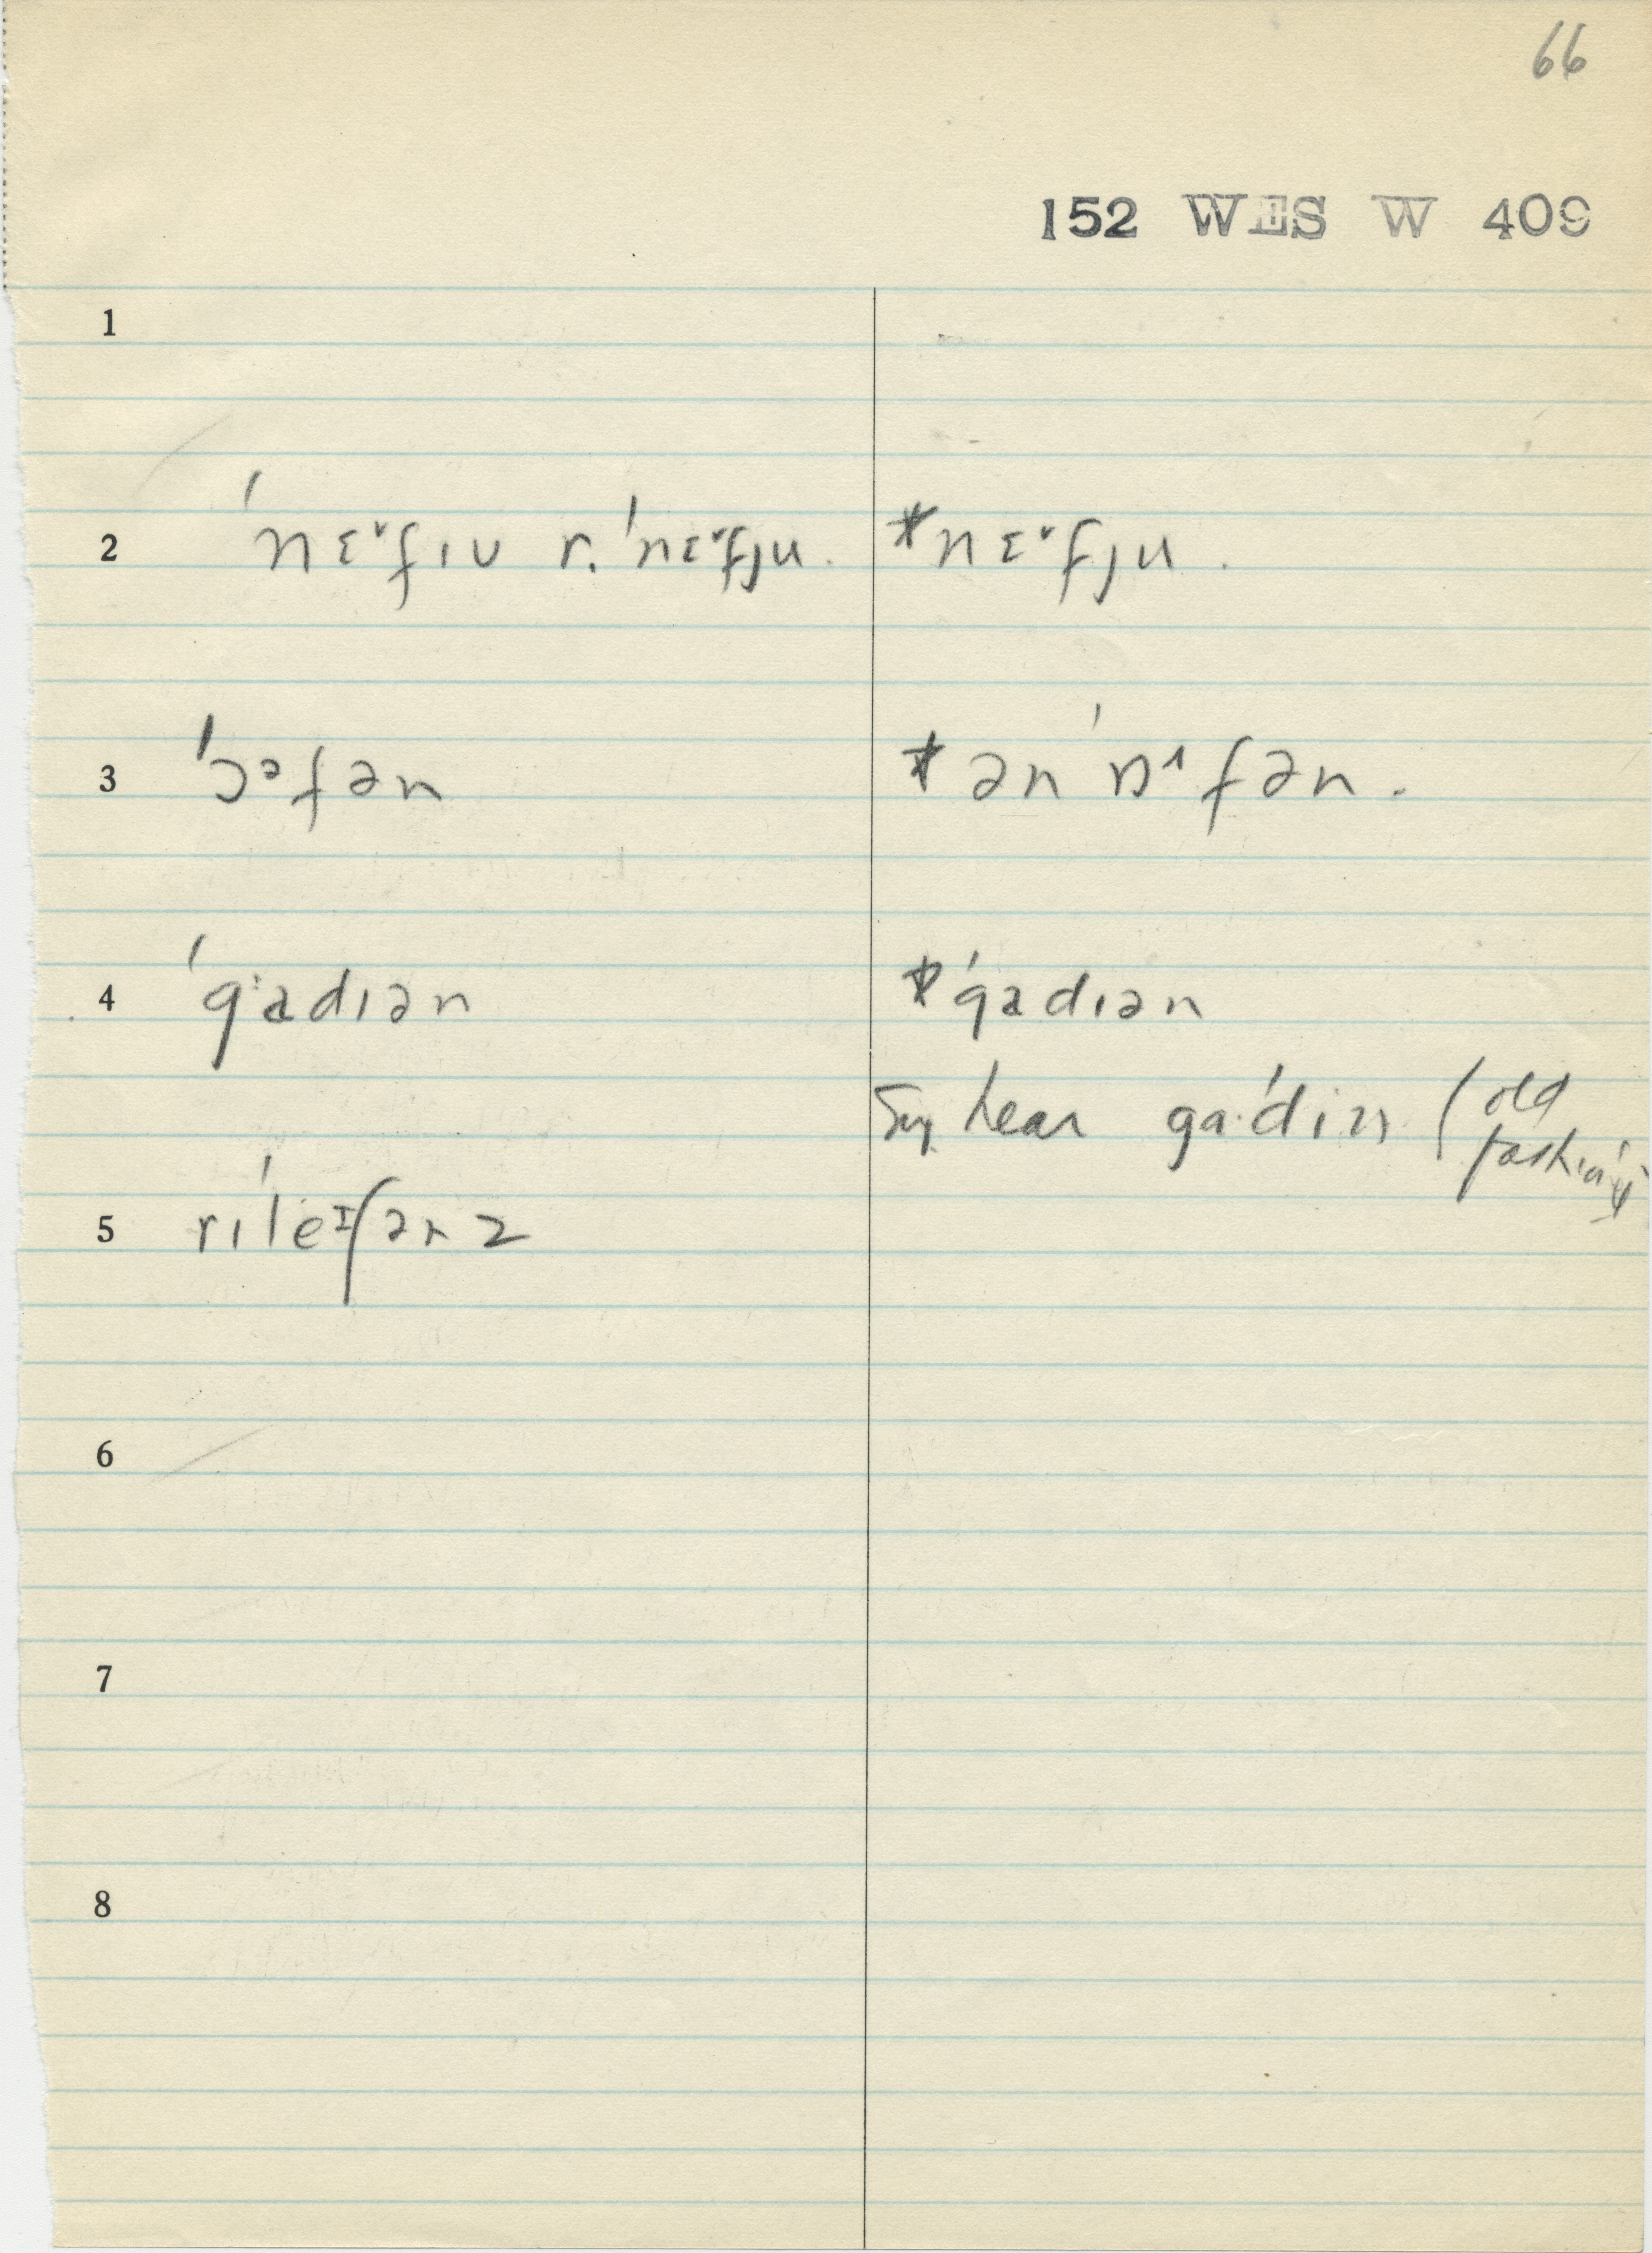 66
152 WES W 409
1
2 ˈnɛ˅fɪu r. ˈnɛ˅fju. *nɛ˅fju.
3 ˈɔᵊfən *ən ˈɒ˄fən.
4 ˈgadɪən *ˈgadɪən
hear gaˑˈdin (old
5 rɪˈleɪʃənz
6
7
8